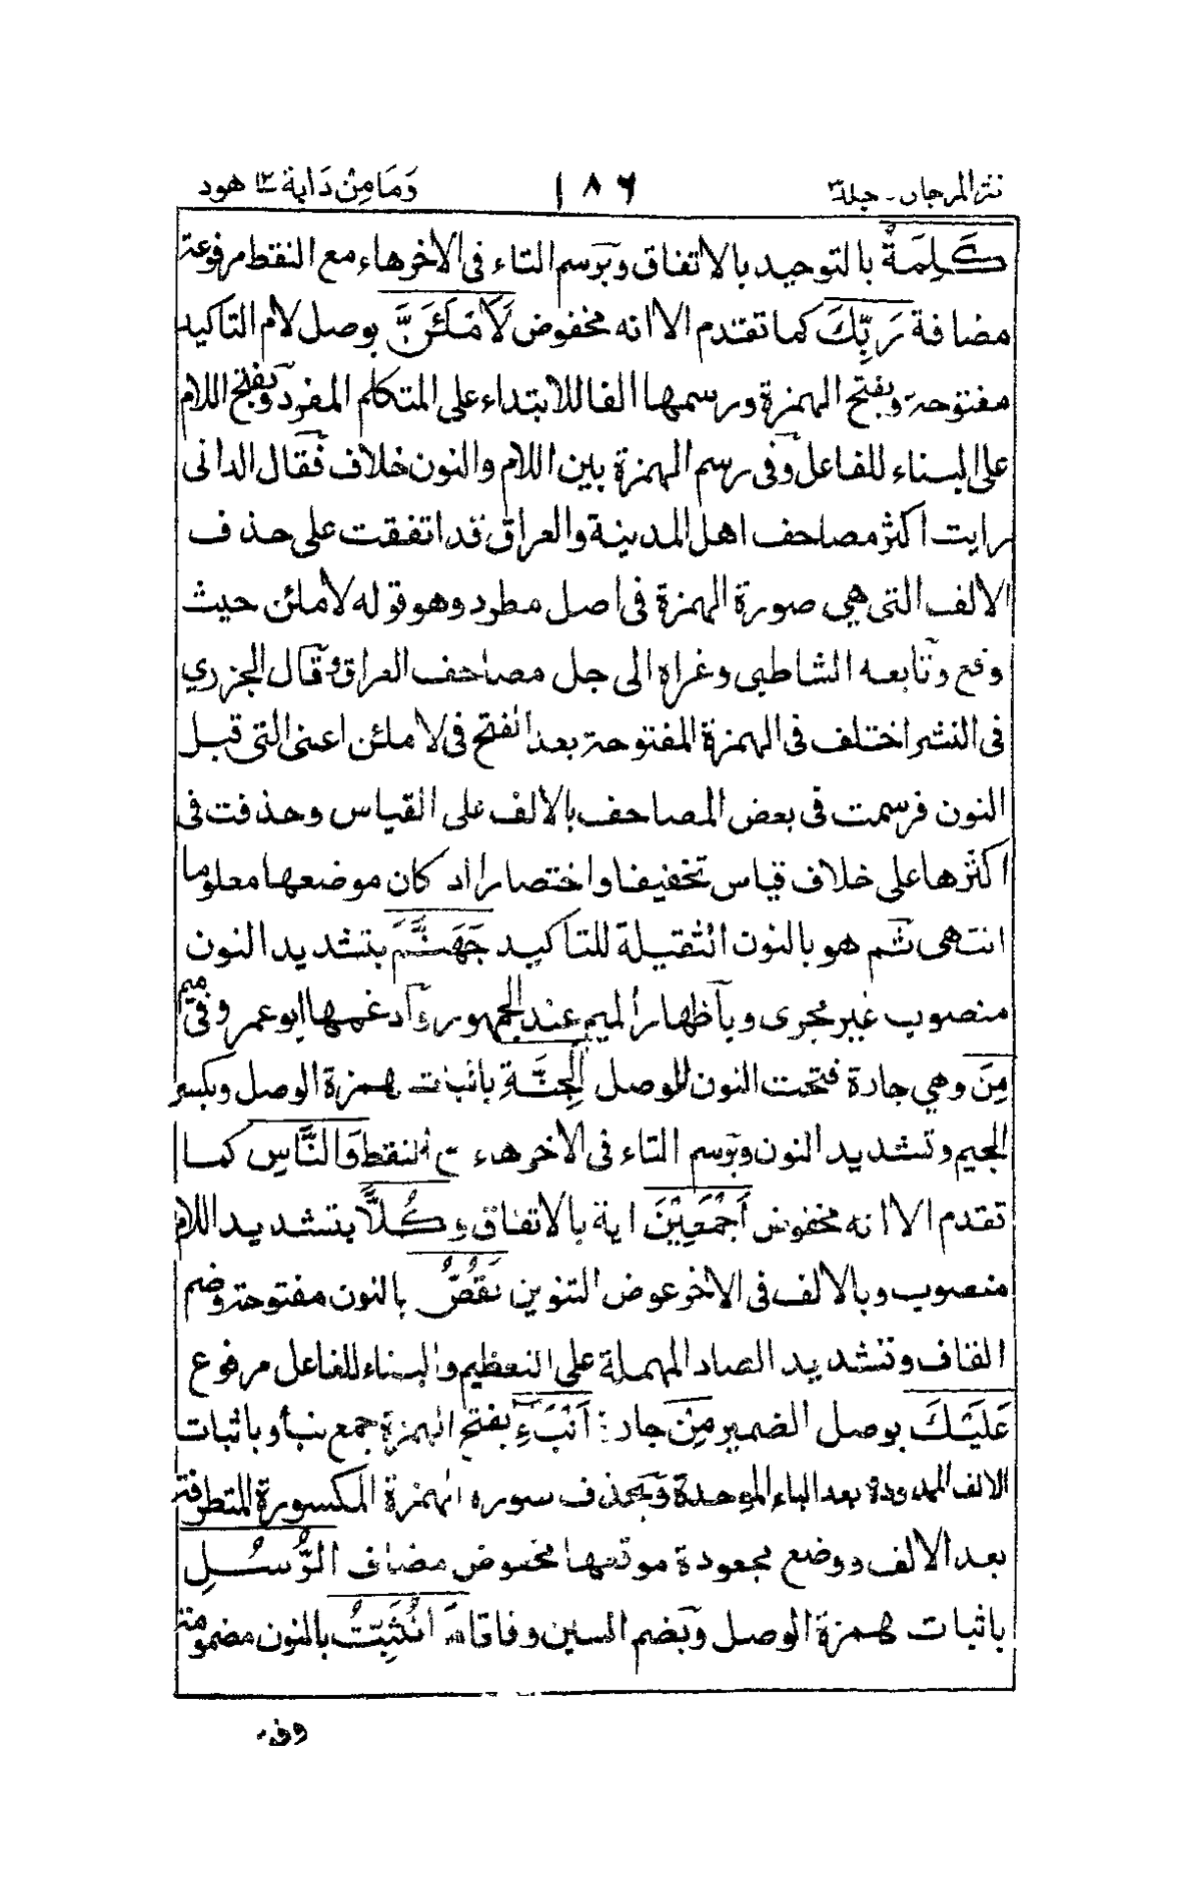 نثر المرجان - جلد٣ ١٨٦ وَمَا مِنْ دَابة ١٢ هود
كَلِمَةُ بالتوحيد بالاتفاق وبرسم التاء فى الاخر هاء مع النقط مرفوعة
مضافة رَبِّكَ كما تقدم الا انه مخفوض لَأَمْلَئَنَّ بوصل لام التاكيد
مفتوحة وبفتح الهمزة ورسمها الفا للابتداء على المتكلم المفرد وبفتح اللام
على البناء للفاعل وفى رسم الهمزة بين اللام والنون خلاف فقال الدانى
رايت اكثر مصاحف اهل المدينة والعراق قد اتفقت على حذف
الالف التى هي صورة الهمزة فى اصل مطرد وهو قوله لاملئن حيث
وقع وتابعه الشاطبى وغراه الى جل مصاحف العراق وقال الجزري
فى النشر اختلف فى الهمزة المفتوحة بعد الفتح فى لاملئن اعنى التى قبل
النون فرسمت فى بعض المصاحف بالالف على القياس وحذفت فى
اكثرها على خلاف قياس تخفيفا واختصارا اد كان موضعها معلوما
انتهى ثم هو بالنون الثقيلة للتاكيد جَهَنَّمَ بتشديد النون
منصوب غير مجرى وباظهار الميم عند الجمهور وادغمها ابو عمر و فى ميم
مِنَ وهي جارة فتحت النون للوصل الْجِنَّةِ باثبات همزة الوصل وبكسر
الجيم وتشديد النون وبرسم التاء فى الاخر هاء مع النقط وَالنَّاسِ كما
تقدم الا انه مخفوض أَجْمَعِيْنَ اية بالاتفاق وَكُلًّا بتشديد اللام
منصوب وبالالف فى الاخر عوض التنوين نَقُصُّ بالنون مفتوحة وضم
القاف وتشديد الصاد المهملة على التعظيم والبناء للفاعل مرفوع
عَلَيْكَ بوصل الضمير مِنْ جار : أَنْبَءِ بفتح الهمزة جمع نبأ وباثبات
الالف الممدودة بعد الباء الموحدة وبحذف سوره الهمزة المكسورة المتطرفة
بعد الالف ووضع مجعودة موقعها مخفوض مضاف الرُّسُلِ
باثبات همزة الوصل وبضم السين وفاقا مَا نُثَبِّتُ بالنون مضمومة